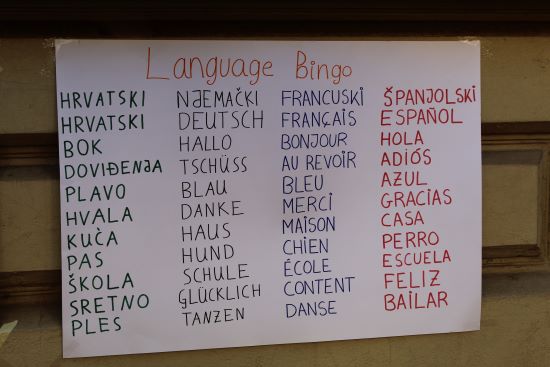 Language Bingo
HRVATSKI
HRVATSKI
BOK
DOVIĐENJA
PLAVO
HVALA
KUĆA
PAS
ŠKOLA
SRETNO
PLES
NJEMAČKI
DEUTSCH
HALLO
TSCHÜSS
BLAU
DANKE
HAUS
HUND
SCHULE
GLÜCKLICH
TANZEN
FRANCUSKI
FRANÇAIS
BONJOUR
AU REVOIR
BLEU
MERCI
MAISON
CHIEN
ÉCOLE
CONTENT
DANSE
ŠPANJOLSKI
ESPAÑOL
HOLA
ADIÓS
AZUL
GRACIAS
CASA
PERRO
ESCUELA
FELIZ
BAILAR